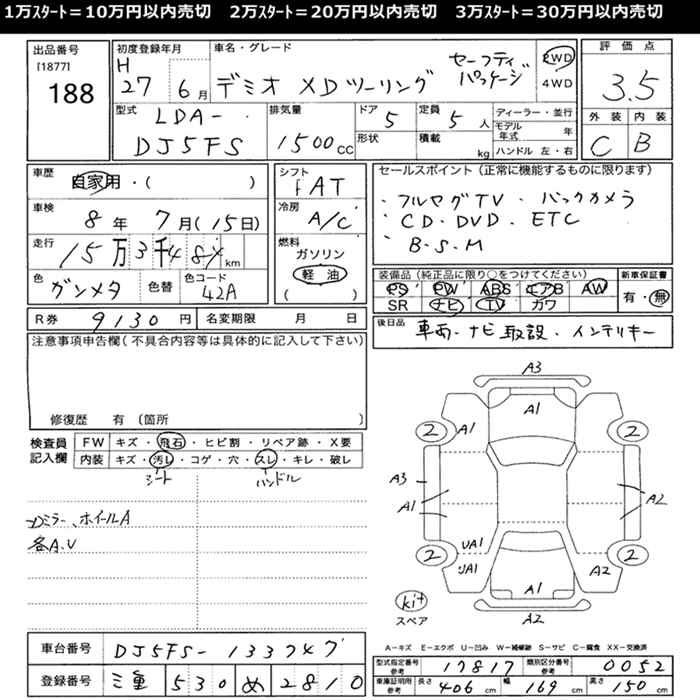 1万ｽﾀｰﾄ＝10万円以内売切　2万ｽﾀｰﾄ＝20万円以内売切　3万ｽﾀｰﾄ＝30万円以内売切
出品番号
[1877]
188
初度登録年月
H
27 6月
車名・グレード
デミオ XDツーリング セーフティパッケージ
2WD
4WD
評価点
3.5
外装 内装
C B
型式
LDA-
DJ5FS
排気量
1500cc
ドア
5
形状
定員
5人
積載
kg
ディーラー・並行
モデル年式 年
ハンドル 左・右
車歴
自家用・( )
車検
8年 7月(15日)
走行
15万3千48 km
色
ガンメタ
色替
色コード
42A
シフト
FAT
冷房
A/C
燃料
ガソリン
軽油
( )
セールスポイント (正常に機能するものに限ります)
・フルセグTV ・バックカメラ
・CD・DVD・ETC
・B・S・M
装備品 (純正品に限り○をつけてください)
PS PW ABS エアB AW
SR ナビ TV カワ
新車保証書
有・無
R券 9130円
名変期限 月 日
後日品
車両・ナビ取説・インテリキー
注意事項申告欄(不具合内容等は具体的に記入して下さい)
修復歴 有 (箇所 )
検査員
記入欄
FW キズ・飛石・ヒビ割・リペア跡・X要
内装 キズ・汚レ・コゲ・穴・スレ・キレ・破レ
シート ハンドル
ミラー、ホイールA
各A.U
A3
A1
2 A1 2
A3
A1 A2
UA1
2 2
UA1 A2
A1
A2
kit
スペア
A－キズ E－エクボ U－凹み W－補修跡 S－サビ C－腐食 XX－交換済
車台番号 DJ5FS-133747
登録番号 三重 530 め 2810
型式指定番号 参考 17817
類別区分番号 参考 0052
車庫証明所 参考 長さ 406cm 幅 169cm 高さ 150cm